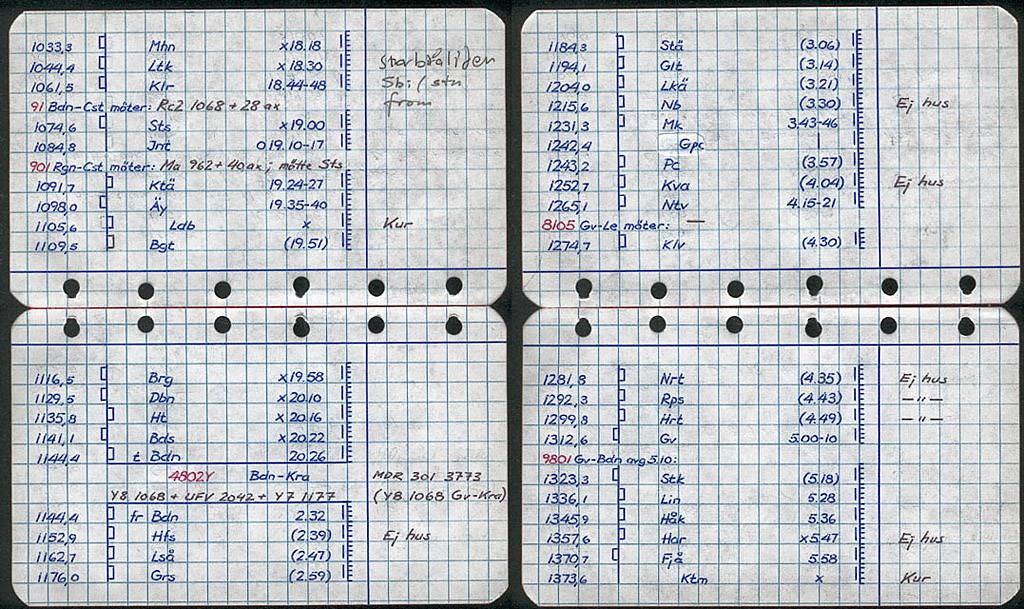 1033,3 Mhn x18.18
1044,4 Ltk x18.30
1061,5 Klr 18.44-48
91 Bdn-Cst möter: Rc2 1068 + 28 ax
1074,6 Sts x19.00
1084,8 Jnt O19.10-17
901 Rgn-Cst möter: Ma 962 + 40 ax; mötte Sts
1091,7 Ktä 19.24-27
1098,0 Äy 19.35-40
1105,6 Ldb x Kur
1109,5 Bgt (19.51)
Sb:/ stn
from
1116,5 Brg x19.58
1129,5 Dbn x20.10
1135,8 Ht x20.16
1141,1 Bds x20.22
1144,4 t Bdn 20.26
4802Y Bdn-Kra MDR 301 3773
Y8 1068 + UFV 2042 + Y7 1177 (Y8 1068 Gv-Kra)
1144,4 fr Bdn 2.32
1152,9 Hfs (2.39) Ej hus
1162,7 Lså (2.47)
1176,0 Grs (2.59)
1184,3 Stä (3.06)
1194,1 Glt (3.14)
1204,0 Lkä (3.21)
1215,6 Nb (3.30) Ej hus
1231,3 Mk 3.43-46
1242,4 Gpc |
1243,2 Pc (3.57)
1252,7 Kva (4.04) Ej hus
1265,1 Ntv 4.15-21
8105 Gv-Le möter: —
1274,7 Klv (4.30)
1281,8 Nrt (4.35) Ej hus
1292,3 Rps (4.43) — " —
1299,8 Hrt (4.49) — " —
1312,6 Gv 5.00-10
9801 Gv-Bdn avg 5.10:
1323,3 Stk (5.18)
1336,1 Lin 5.28
1345,9 Håk 5.36
1357,6 Har x5.47 Ej hus
1370,7 Fjå 5.58
1373,6 Ktm x Kur